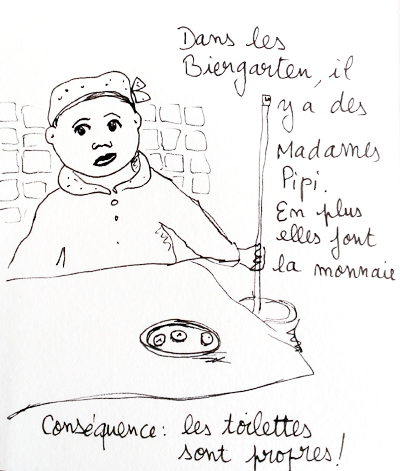 Dans les
Biergarten, il
y a des
Madames
Pipi.
En plus
elles font
la monnaie
Conséquence: les toilettes
sont propres!